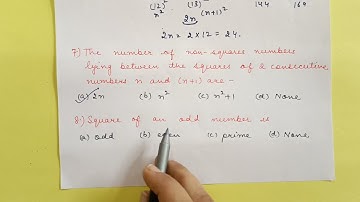 (12)² (13)² 144 169
n² (n+1)²
2n
2n = 2 × 12 = 24.
7) The number of non-squares numbers
lying between the squares of 2 consecutive
numbers n and (n+1) are -
(a) 2n (b) n² (c) n²+1 (d) None
8) Square of an odd number is
(a) odd (b) even (c) prime (d) None